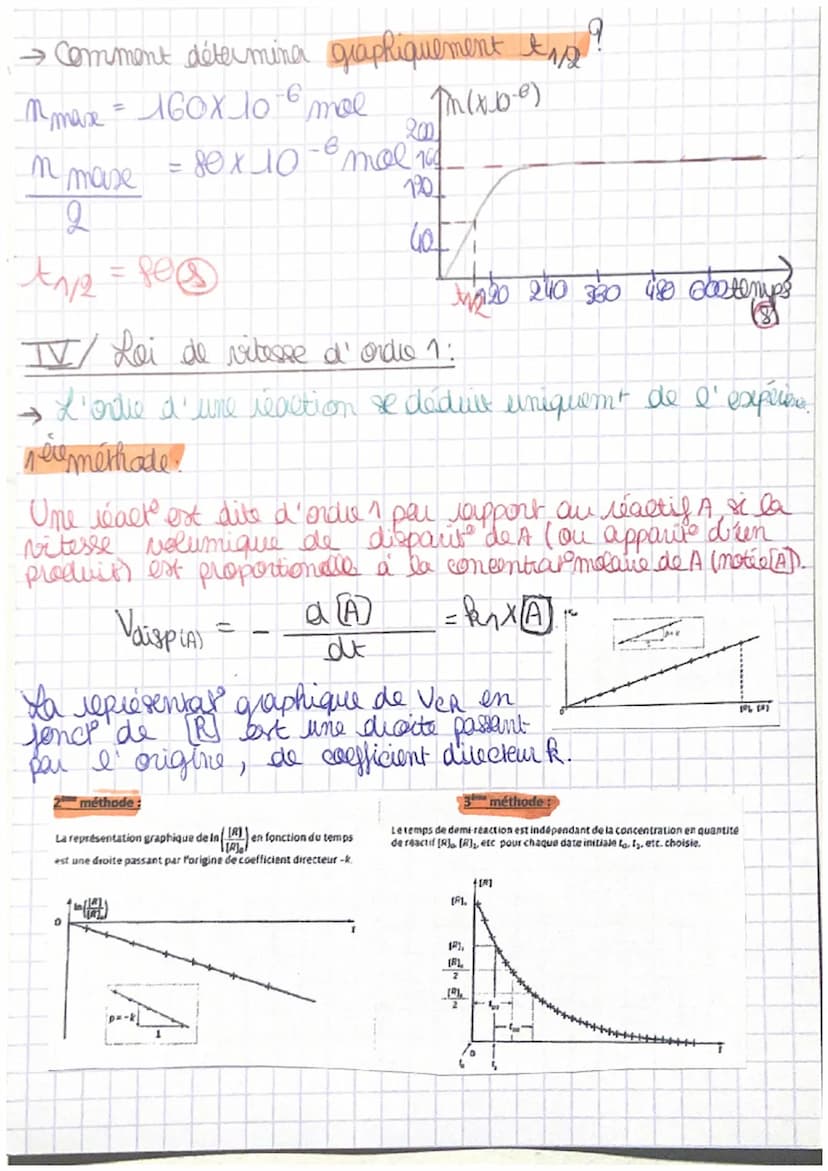 → Comment déterminer graphiquement t1/2 ?
n maxe = 160 x 10⁻⁶ mol
n maxe / 2 = 80 x 10⁻⁶ mol
t1/2 = 80 s
n (x10⁻⁶)
200
160
120
40
t1/2 120 240 360 480 600 temps
(s)
IV/ Loi de vitesse d'ordre 1 :
→ L'ordre d'une réaction se déduit uniquemt de l'expérience.
1ère méthode :
Une réact° est dite d'ordre 1 par rapport au réactif A si la
vitesse volumique de disparit° de A (ou apparit° d'un
produit) est proportionelle à la concentrat° molaire de A (notée [A]).
Vdisp(A) = - d[A] / dt = k1 x [A]
La représentat° graphique de VeR en
fonct° de [R] est une droite passant
par l'origine, de coefficient directeur k.
2ème méthode :
La représentation graphique de ln([R]/[R]₀) en fonction du temps
est une droite passant par l'origine de coefficient directeur -k.
ln([R]/[R]₀)
0
t
p=-k
1
3ème méthode :
Le temps de demi-réaction est indépendant de la concentration en quantité
de réactif [R]₀, [R]₁, etc pour chaque date initiale t₀, t₁, etc. choisie.
[R]
[R]₀
[R]₁
[R]₀/2
[R]₁/2
t1/2
t1/2
0
t₀ t₁
t